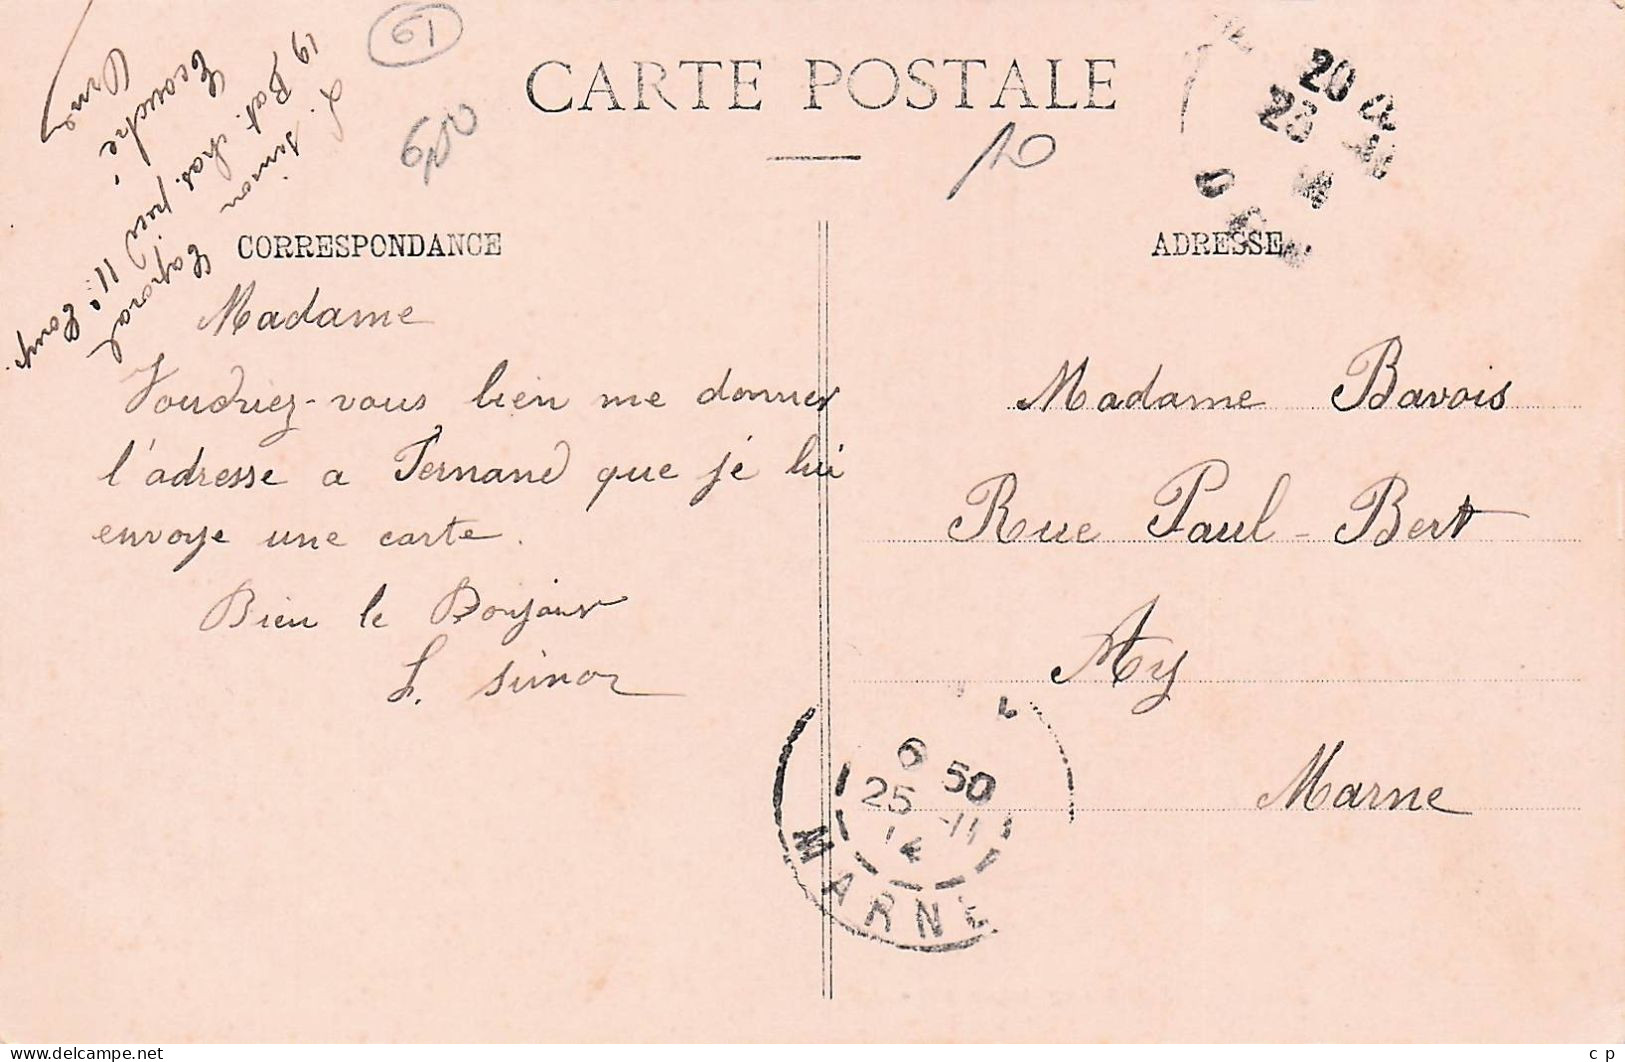 61
CARTE POSTALE
6,50
10
L. Simon Caporal
19 Bat. chas. pied 11e Comp.
Ecouché
Orne
20
23
CORRESPONDANCE
ADRESSE
Madame
Voudriez-vous bien me donner
l'adresse a Fernand que je lui
envoye une carte.
Bien le Bonjour
L. Simon
Madame Bavois
Rue Paul-Bert
Ay
Marne
6 50
25 -11
14
MARNE
c p
© delcampe.net